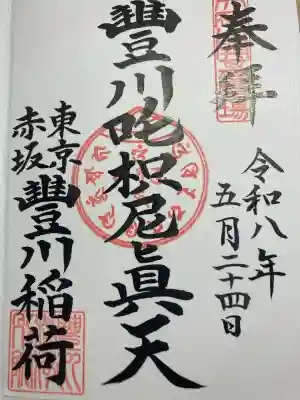 奉拝
令和八年
五月二十四日
豐川吒枳尼眞天
東京
赤坂
豐川稲荷